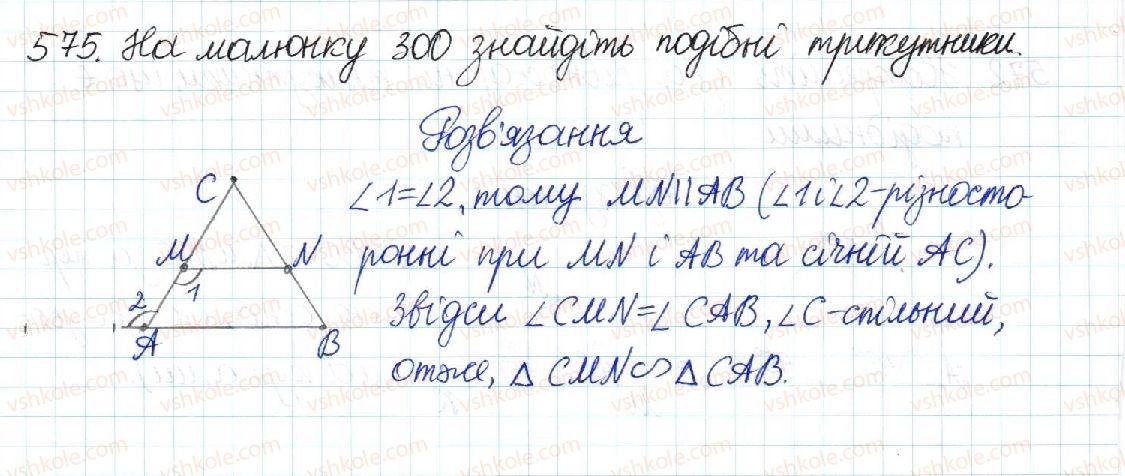 575. На малюнку 300 знайдіть подібні трикутники.
Розв'язання
∠1=∠2, тому MN||AB (∠1 і ∠2-різносто-
ронні при MN і AB та січній AC).
Звідси ∠CMN=∠CAB, ∠C-спільний,
отже, △CMN∽△CAB.
C
M N
1
2
A B
vshkole.com